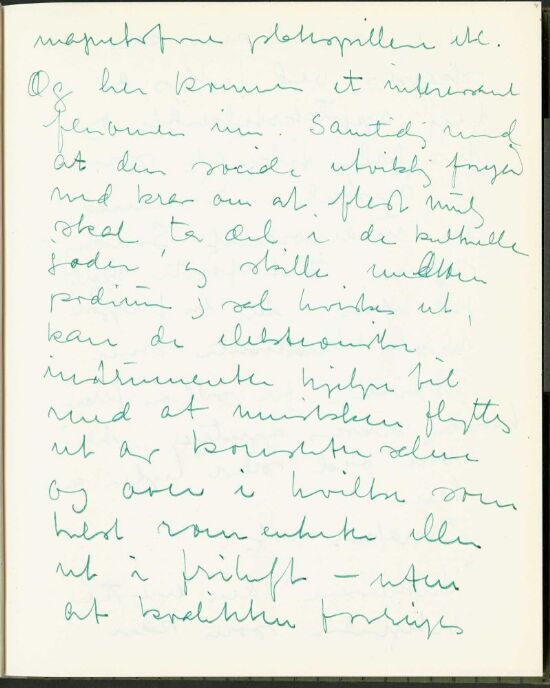 magnetofoner platespillere etc.
Og her kommer et interessant
fenomen inn. Samtidig med
at den sociale utvikling
med krav om at flest mulig
skal ta del i de kulturelle
goder, og skille mellem
podium og sal viskes ut,
kan de elektroniske
instrumenter hjelpe til
med at musikken flyttes
ut av konsertsalene
og over i hvilke som
helst rom enten eller
ut i friluft – uten
at kvalitten forringes